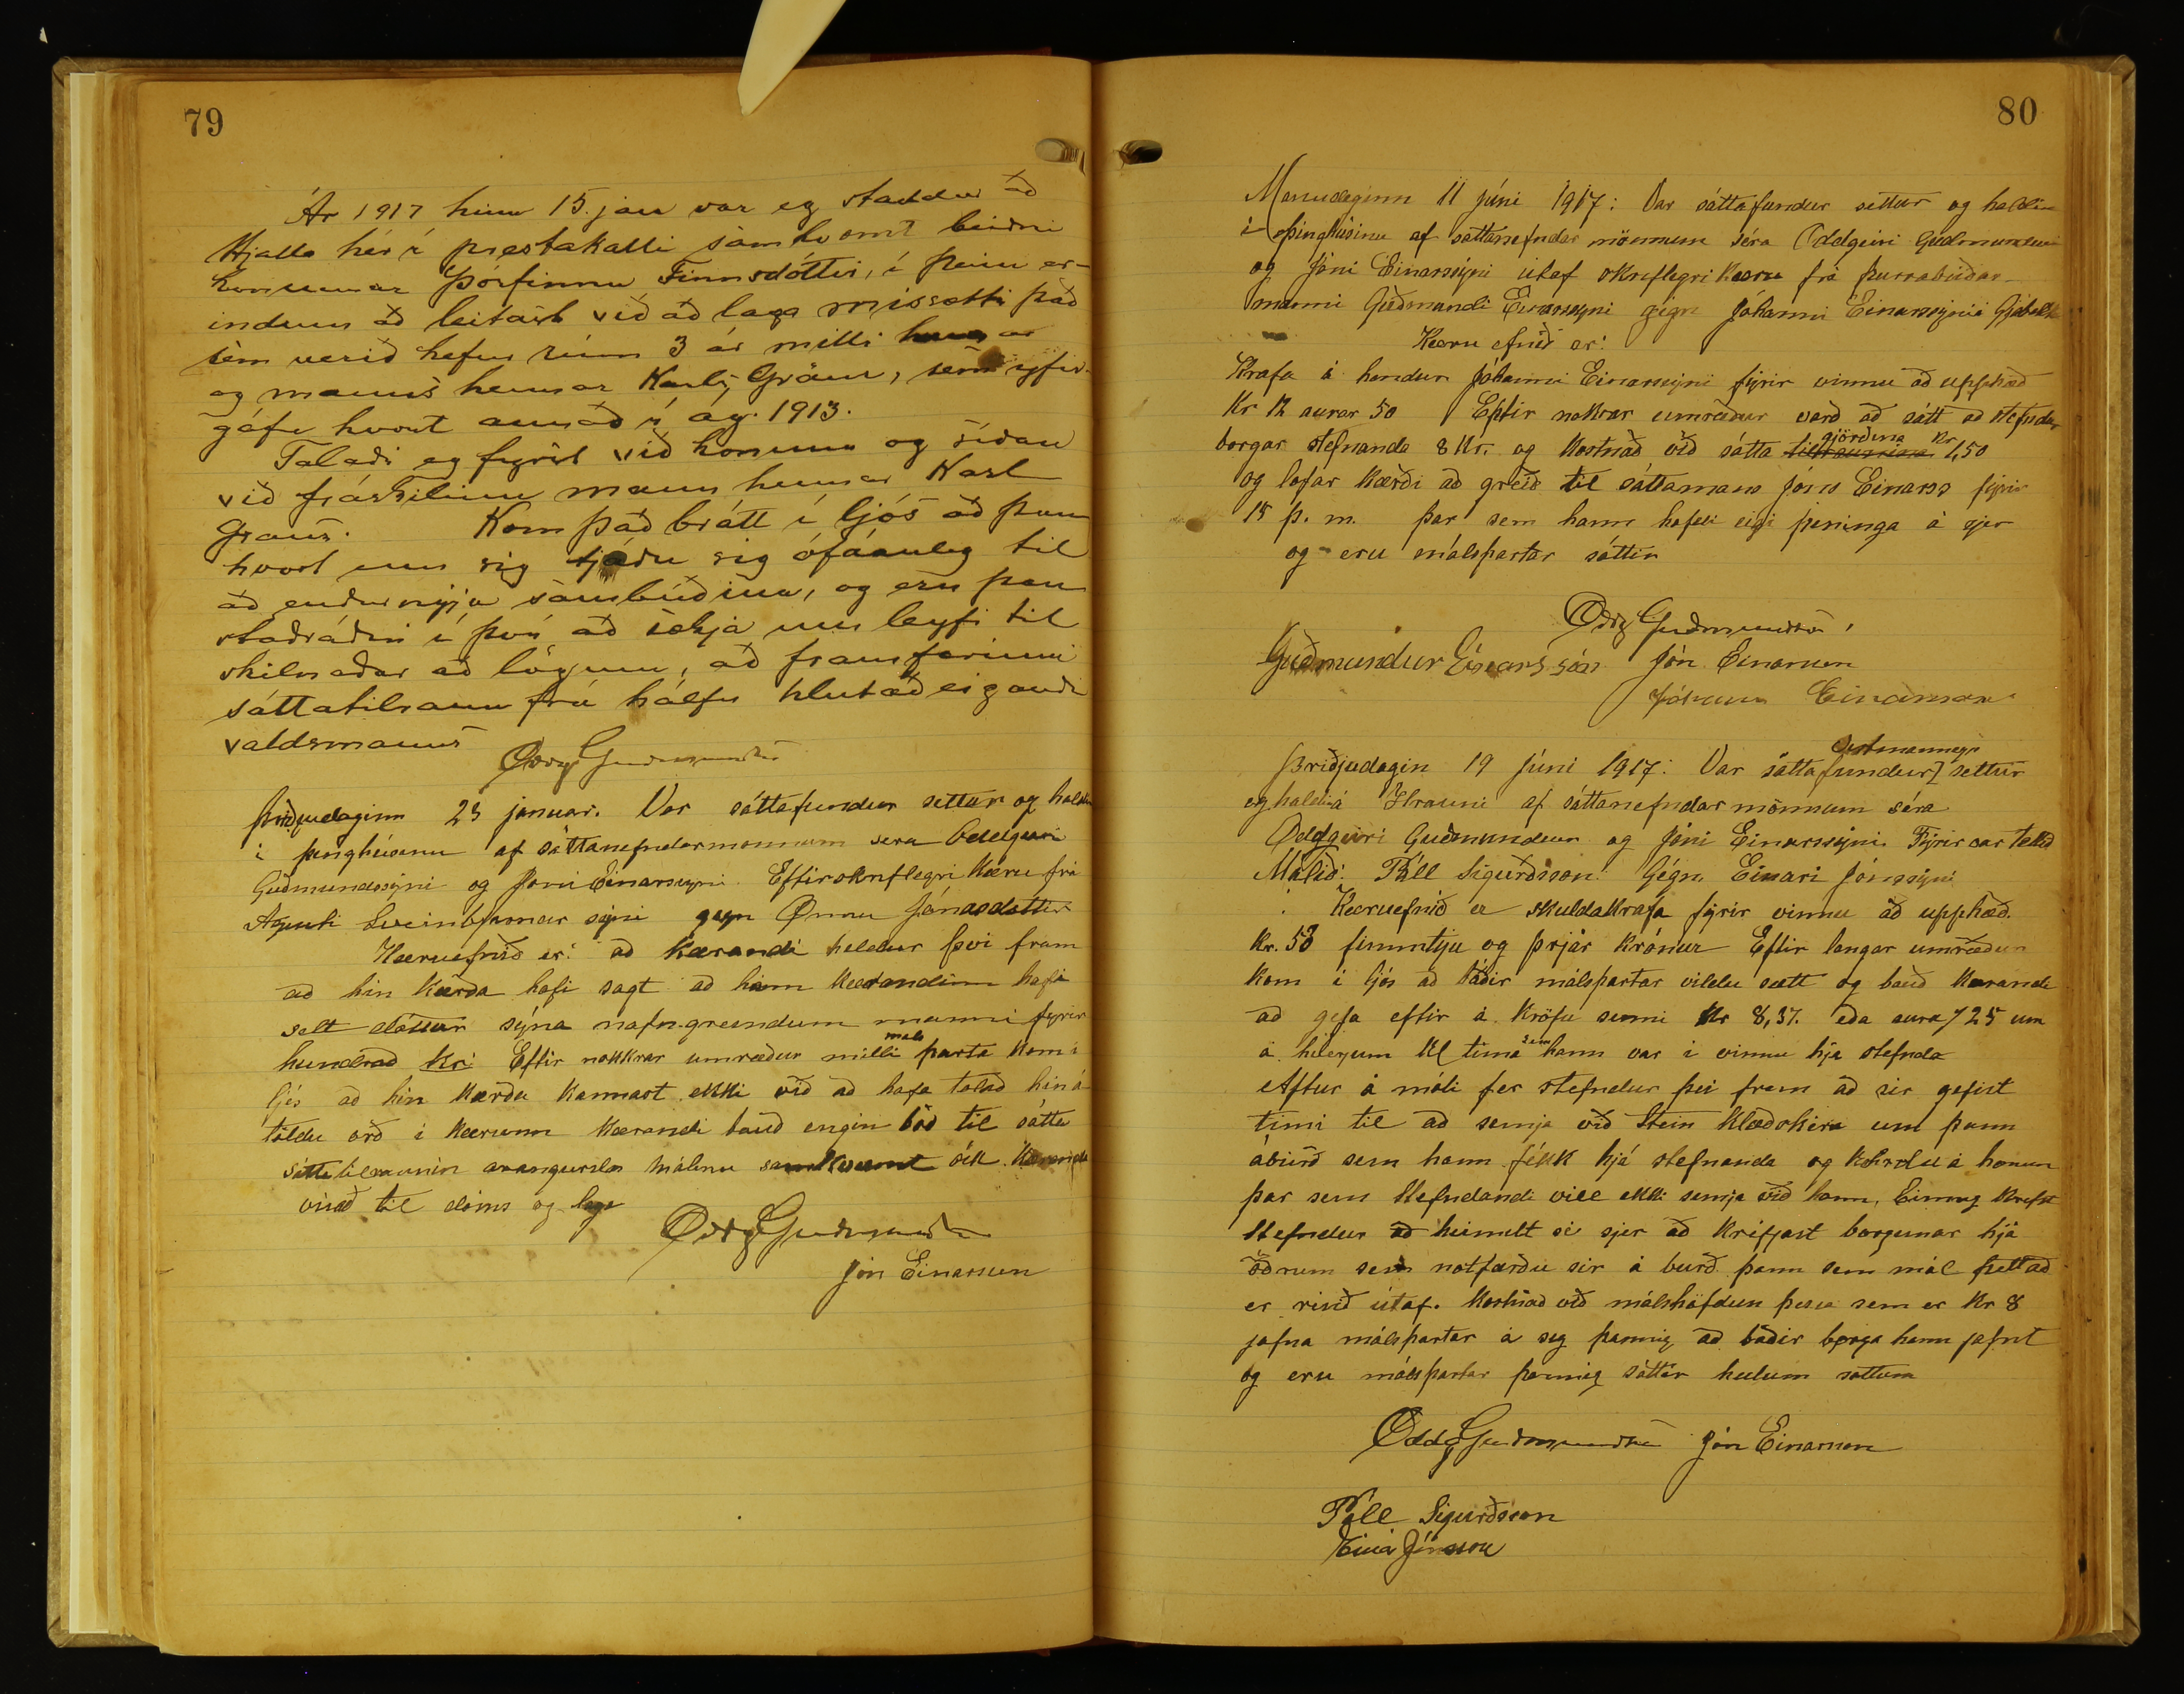 79
Ár 1917 hinn 15. jan var eg staddur að
Hjalla hér í prestakalli samkvæmt beiðni
konunnar Þórfinnu Finnsdóttir, í þeim er-
indum að leitast við að laga missætti það
sem verið hefur rúm 3 ár milli hennar
og manns hennar Karls Gräns, sem yfir-
gáfu hvort annað í ág. 1913.
Talaði eg fyrst við konuna og síðan
við fráskilinn mann hennar Karl
Gräns. Kom það brátt í ljós að þau
hvort um sig tjáðu sig ófáanleg til
að endurnýja sambúðina, og eru þau
staðráðin í því að sækja um leyfi til
skilnaðar að lögum, að framfarinni
sáttatilraun frá hálfu hlutaðeigandi
valdsmanns
Oddg Guðmundsen
Þriðjudaginn 23 januar. Var sáttafundur settur og haldin
í þinghúsinu af sáttanefndarmonnum sera Oddgeiri
Guðmundssýni og Jóni Einarssyni Eftir skriflegri Kæru frá
Sveinbjarnar sýni gegn Önnu Jónasdóttir
Kæruefnið er: að Kærandi heldur því fram
að hin Kærða hafi sagt að hann Kærandinn hafi
selt dóttur sýna nafngreindum manni fyrir
hundrað kr: Eftir nokkrar umræður milli máls parta Kom í
ljós að hin Kærða Kannast ekki við að hafa talað hin á
töldu orð í Kærunni Kærandi bauð engin boð til sátta
sáttatilraunin arangurslaus Málinu samkvæmt ósk Kæranda
vísað til dóms og laga
Oddg Guðmundsen
Jón Einarsson
80
Manudaginn 11 júni 1917: Var sáttafundur settur og haldin
í þinghúsinu af sáttanefndar mönnum séra Oddgeiri Guðmundsen
og Jóni Einarssýni útaf skriflegri Kæru frá þurrabúðar-
manni Guðmundi Einarssyni gégn Jóhanni Einarssýni á
Kæru efnið er:
Krafa á hendur Jóhanni Einarssýni fýrir vinnu að upphæð
Kr 12 aurar 50 Eftir nokrar umræður varð að sátt að stefndur
borgar stefnanda 8 Kr. og Kostnað við sátta tilraunina gjörðina Kr 1,50
og lofar Kærði að greið til sáttamans Jóns Einarss fýrir
15 þ. m. þar sem hann hafði eigi peninga á sjer
og eru málspartar sáttir
Oddg Guðmundsen
Guðmundur Einarsson Jón Einarsson
Jóhann Einarsson
Þriðjudagin 19 Júni 1917: Var sáttafundur settur
og haldin á Hrauni af sáttanefndar mönnum séra
Oddgeiri Guðmundsen og Jóni Einarssýni. Fýrir var tekið
Málið: Páll Sigurðsson: Gégn Einari Jónssýni
Kæruefnið er skuldakrafa fýrir vinnu að upphæð.
Kr. 53 fimmtýu og þrjár krónur Eftir langar umræður
Kom í ljós að báðir málspartar vildu sætt og bauð Kærandi
að gefa eftir á Kröfu sinni Kr 8,37. eða aura 25 um
á hverjum Kl tíma sem hann var í vinnu hjá stefnda
Aftur á móti fer stefndur því fram að sér gefist
tími til að semja við Stein Klæðskera um þann
áburð sem hann fékk hjá stefnanda og á honum
þar sem Stefndandi vill ekki semja við hann. Einnig krefst
Stefndur að heimilt sé sjer að Kréfjast borgunar hjá
öðrum sem notfærðu sér á burð þann sem mál þettað
er risið útaf. Kostnað við málshöfdun þessa sem er Kr 8
jafna málspartar á sig þannig að báðir borga hann jafnt
og eru málspartar þannig sáttir heilum sáttum
Oddg Guðmundsen Jón Einarsson
Páll Sigurðsson
Einar Jónsson